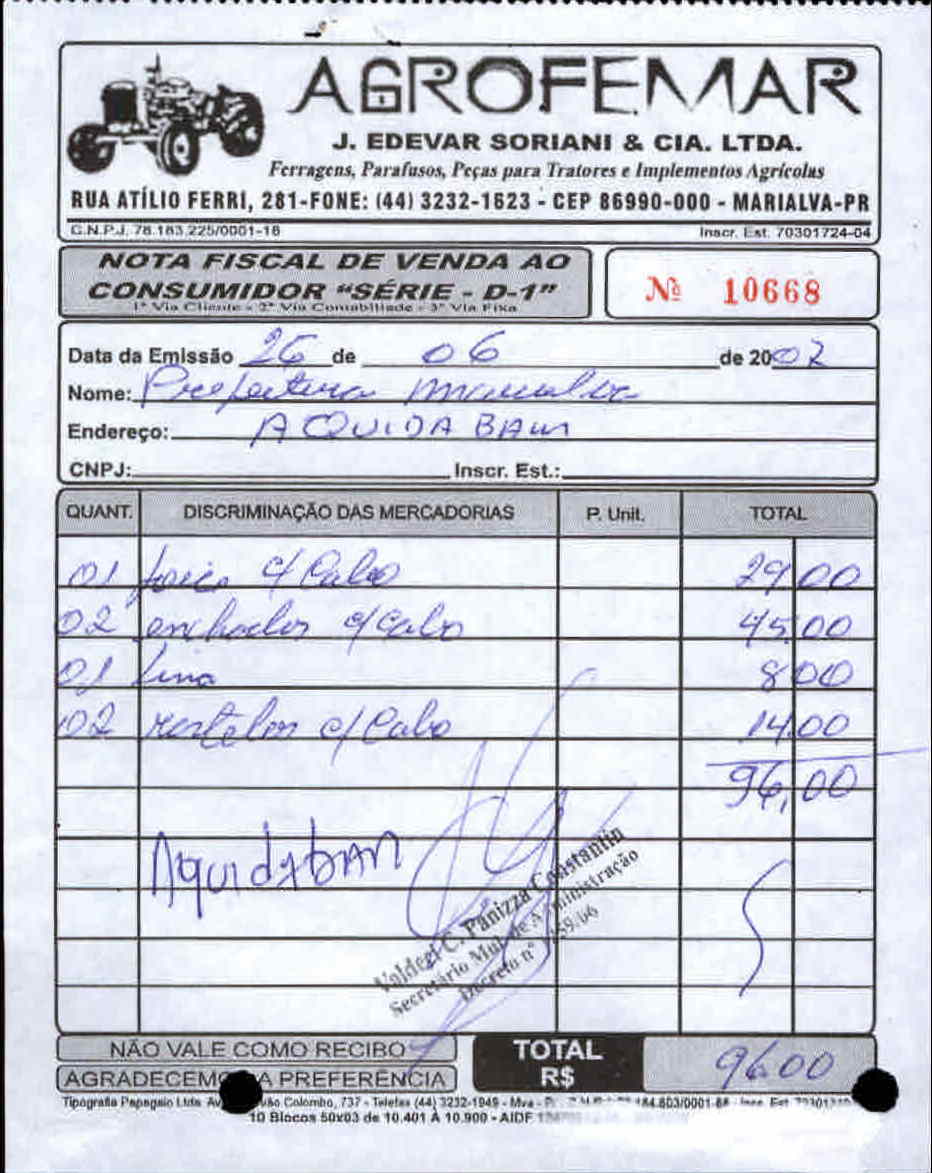 AGROFEMAR
J. EDEVAR SORIANI & CIA. LTDA.
Ferragens, Parafusos, Peças para Tratores e Implementos Agrícolas
RUA ATÍLIO FERRI, 281-FONE: (44) 3232-1623 - CEP 86990-000 - MARIALVA-PR
C.N.P.J. 78.183.225/0001-18 Inscr. Est. 70301724-04
NOTA FISCAL DE VENDA AO
CONSUMIDOR "SÉRIE - D-1"
1ª Via Cliente - 2ª Via Contabiliade - 3ª Via Fixa
Nº 10668
Data da Emissão 26 de 06 de 2007
Nome: Prefeitura Marialva
Endereço: AQUIDABAN
CNPJ: Inscr. Est.:
QUANT. DISCRIMINAÇÃO DAS MERCADORIAS P. Unit. TOTAL
01 foice c/ Cabo 29,00
02 enchadas c/ Cabo 45,00
01 lima 8,00
02 c/ Cabo 14,00
96,00
Aquidaban
Valdeci C. Panizza Constantin
Secretário Mul. de Administração
Decreto nº
NÃO VALE COMO RECIBO
AGRADECEMOS A PREFERÊNCIA
TOTAL
R$ 96,00
Tipografia Papagaio Ltda. Colombo, 737 - Telefax (44) 3232-1949 - Mva - 
10 Blocos 50x03 de 10.401 À 10.900 - AIDF